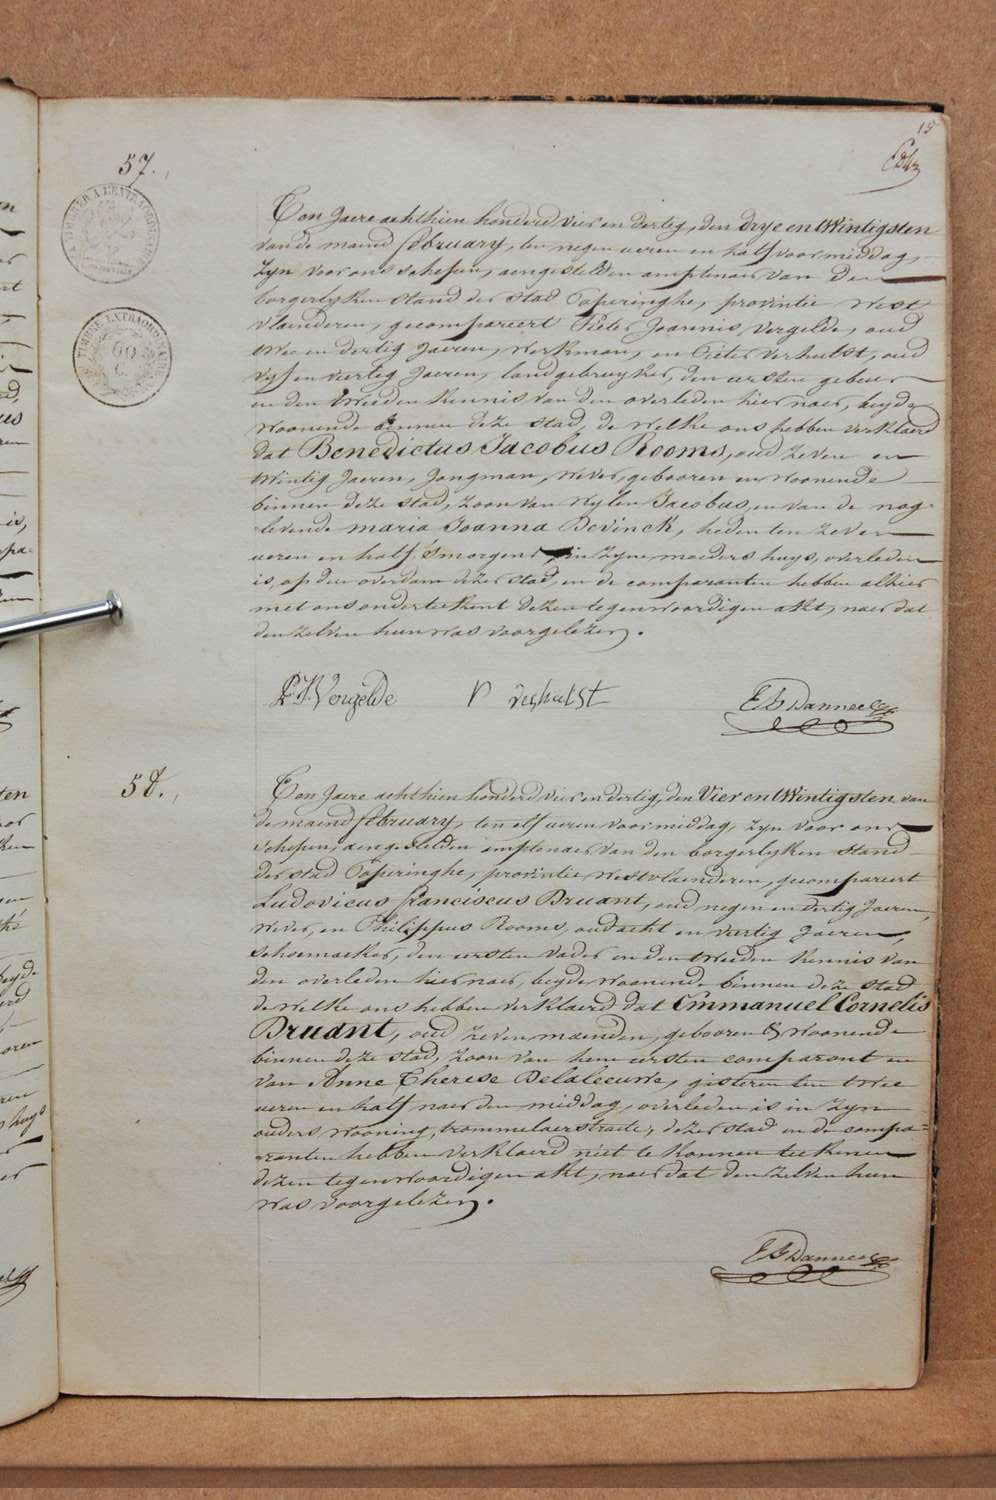 15
57.
A L'EXTRAORDINAIRE
TIMBRE EXTRAORDINAIRE
60
C.
Ton Jaere achthien honderd vier en dertig, den drye en twintigsten
van de maend february, ten negen ueren en half voormiddag,
zyn voor ons schepen, aengestelden amptenaer van den
borgerlyken stand der stad Poperinghe, provintie West
Vlaenderen, gecompareert Pieter Joannis Vergelde, oud
twee en dertig Jaeren, werkman, en Pieter Verhulst, oud
vyf en viertig Jaeren, landgebruyker, den eersten gebuer
en den tweeden kennis van den overleden hier naer, beyde
woonende binnen deze stad, de welke ons hebben verklaerd
dat Benedictus Jacobus Rooms, oud zeven en
twintig Jaeren, Jongman, wever, gebooren en woonende
binnen deze stad, zoon van wylen Jacobus, en van de nog
levende maria Joanna Devinck, heden ten zeven
ueren en half 'smorgens, in zyne moeders huys, overleden
is, op den overdam dezer stad, en de comparanten hebben alhier
met ons onderteekent dezen tegenwoordigen akt, naer dat
den zelven hun was voorgelezen.
P J Vergelde P verhulst
58.
Ton Jaere achthien honderd vier en dertig, den Vier en twintigsten van
de maend february, ten elf ueren voormiddag, zyn voor ons
schepen, aengestelden amptenaer van den borgerlyken stand
der stad Poperinghe, provintie westvlaenderen, gecompareert
Ludovicus franciscus Bruant, oud negen en dertig Jaeren,
wever, en Philippus Rooms, oud acht en viertig Jaeren,
schoemaeker, den eersten vader en den tweeden kennis van
den overleden hier naer, beyde woonende binnen deze stad
de welke ons hebben verklaerd dat Emmanuel Cornelis
Bruant, oud zeven maenden, gebooren & woonende
binnen deze stad, zoon van hem eersten comparant en
van Anne Therese Delaleeuwe, gisteren ten twee
ueren en half naer den middag, overleden is in zyn
ouders wooning, trommelaerstraete, dezer stad en de compa=
ranten hebben verklaerd niet te konnen teekenen
dezen tegenwoordigen akt, naer dat den zelven hun
was voorgelezen.